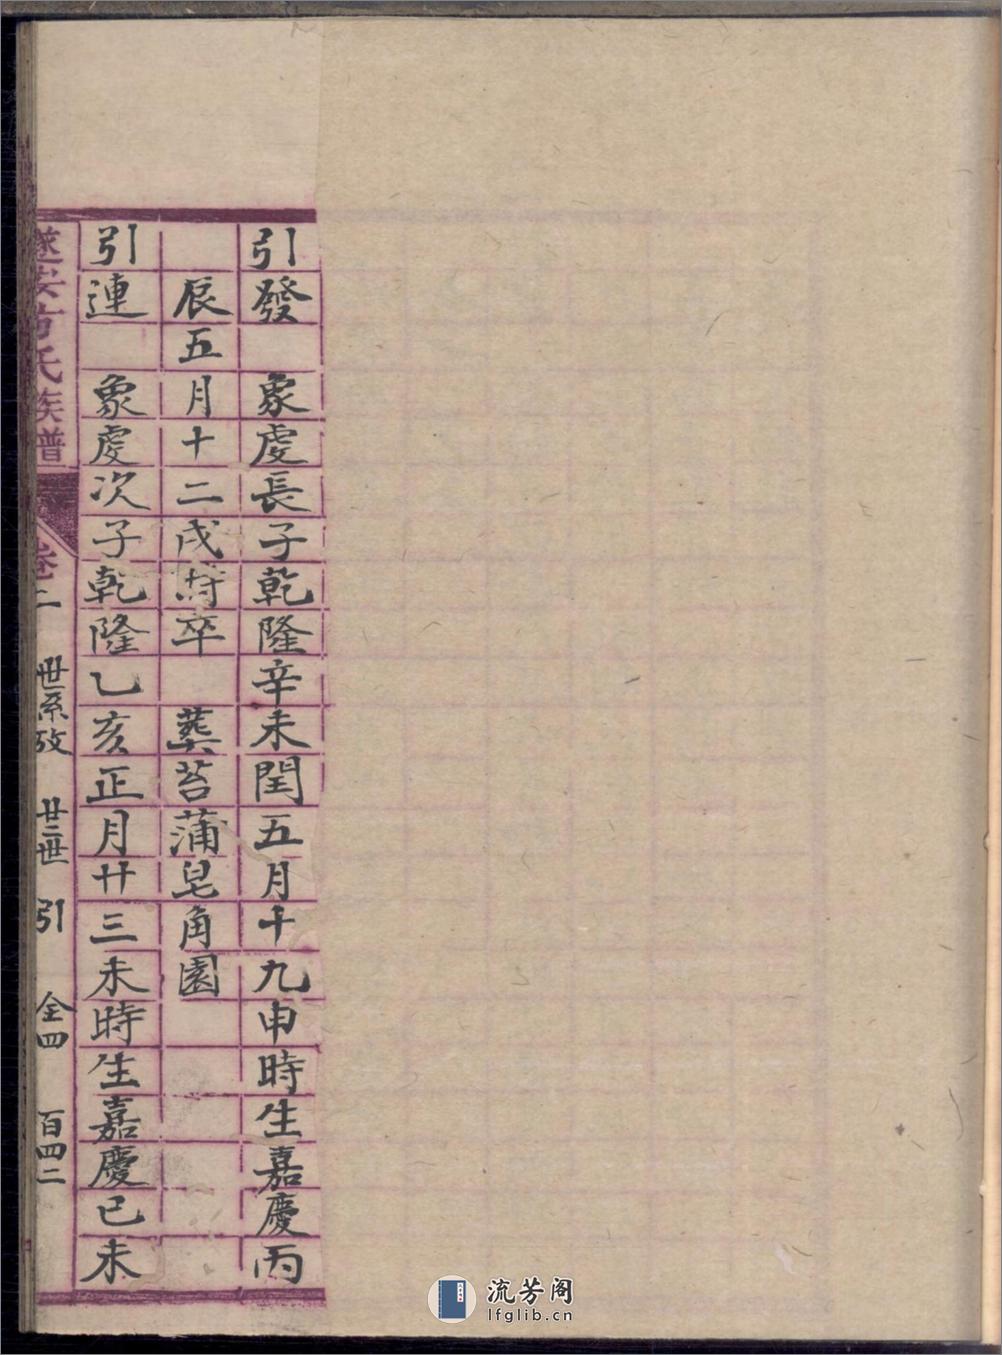 引發 象虔長子乾隆辛未閏五月十九申時生嘉慶丙
辰五月十二戌時卒 葬苔蒲皂角園
引連 象虔次子乾隆乙亥正月廿三未時生嘉慶己未
遂安方氏族譜 卷二 世系攷 廿二世 引 仝四 百四二
流芳阁
lfglib.cn